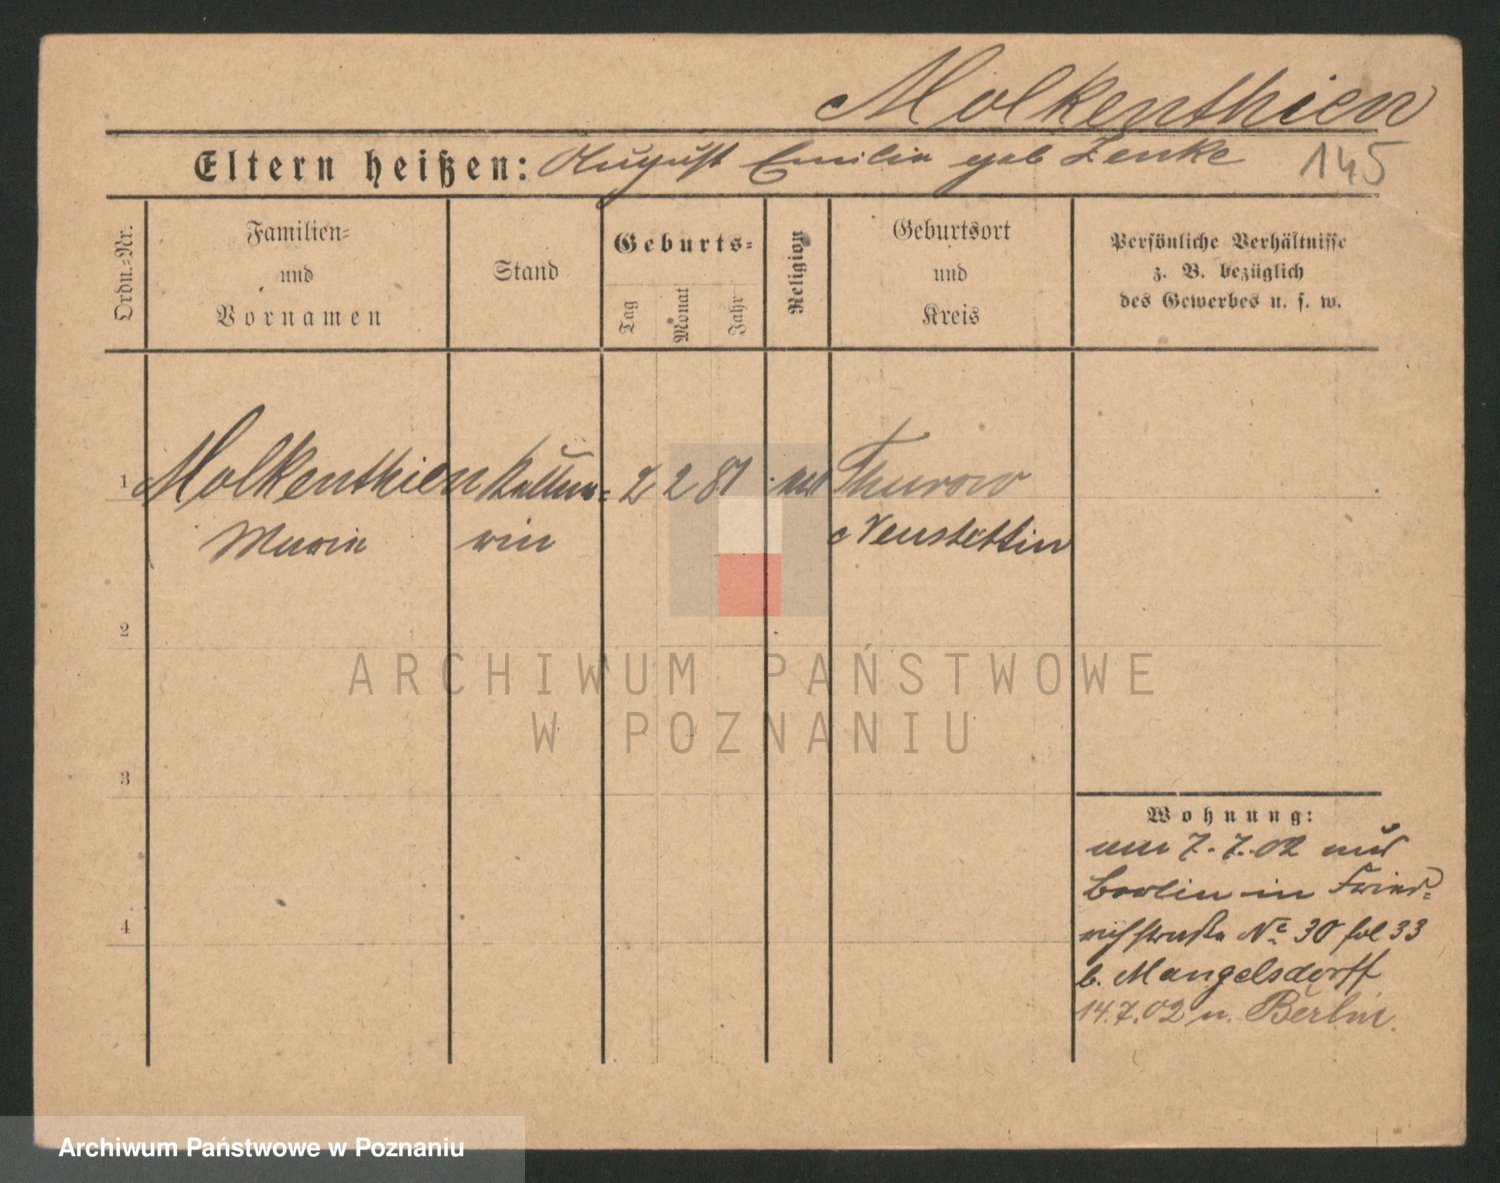 Molkenthien
Eltern heißen: August Emilie geb Zenke 145
Ordn.=Nr.
Familien=
und
Vornamen
Stand
Geburts=
Tag
Monat
Jahr
Religion
Geburtsort
und
Kreis
Persönliche Verhältnisse
z. B. bezüglich
des Gewerbes u. s. w.
1 Molkenthien Kellne= 2 2 81 Thurow
Marie rin Neustettin
2
ARCHIWUM PAŃSTWOWE
W POZNANIU
3
Wohnung:
am 7.7.02 aus
Berlin in Fried=
richstraße No 30 fol 33
b. Mangelsdorff
4
14.7.02 n. Berlin.
Archiwum Państwowe w Poznaniu